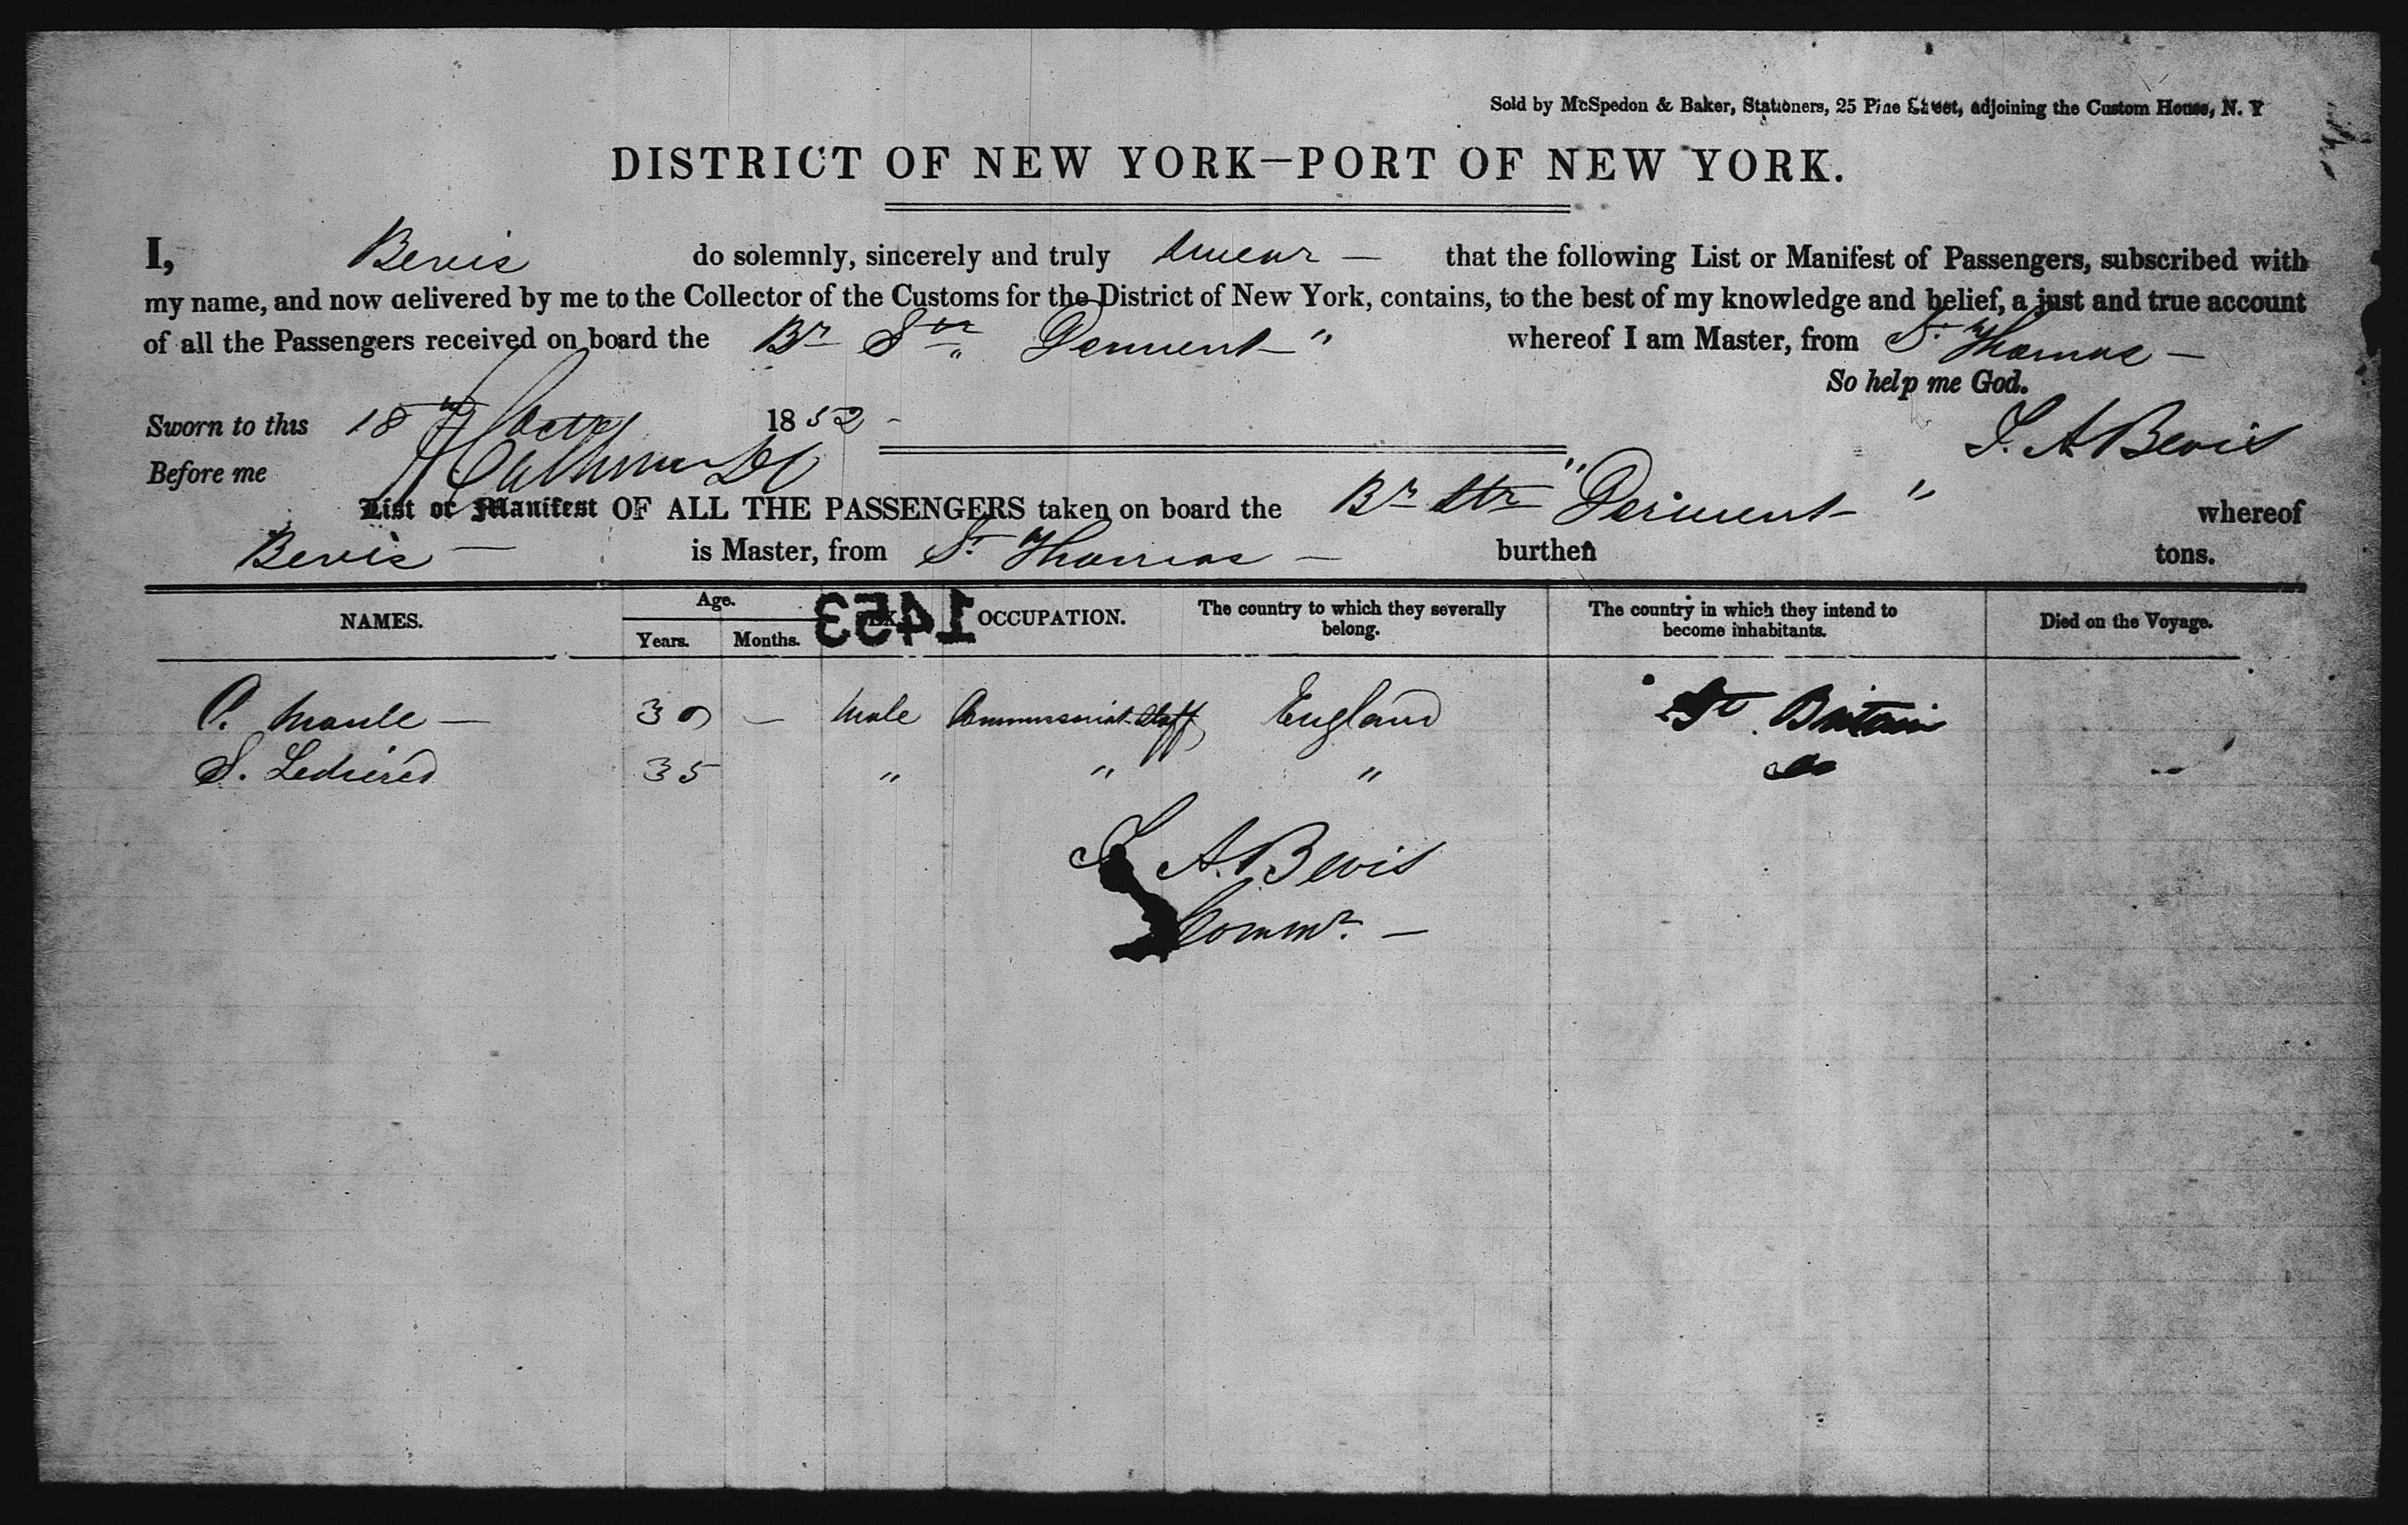 Sold by McSpedon & Baker, Stationers, 25 Pine Street, adjoining the Custom House, N. Y
DISTRICT OF NEW YORK—PORT OF NEW YORK.
I, Bevis do solemnly, sincerely and truly swear — that the following List or Manifest of Passengers, subscribed with
my name, and now delivered by me to the Collector of the Customs for the District of New York, contains, to the best of my knowledge and belief, a just and true account
of all the Passengers received on board the Br Str "Derwent" whereof I am Master, from St Thomas —
So help me God.
Sworn to this 18th 1852 - J. A Bevis
Before me
List or Manifest OF ALL THE PASSENGERS taken on board the Br Str "Derwent" whereof
Bevis — is Master, from St Thomas — burthen tons.
NAMES. Age. 1453 OCCUPATION. The country to which they severally belong. The country in which they intend to become inhabitants. Died on the Voyage.
Years. Months.
Maule — 30 — Male Commissariat Staff England Gt. Britain
S. 35 " " " do
J A. Bevis
Commr. —